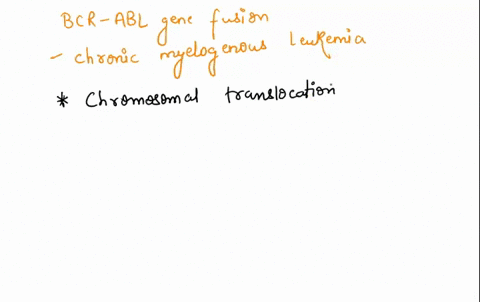 BCR-ABL gene fusion
- chronic myelogenous Leukemia
* Chromosomal translocation